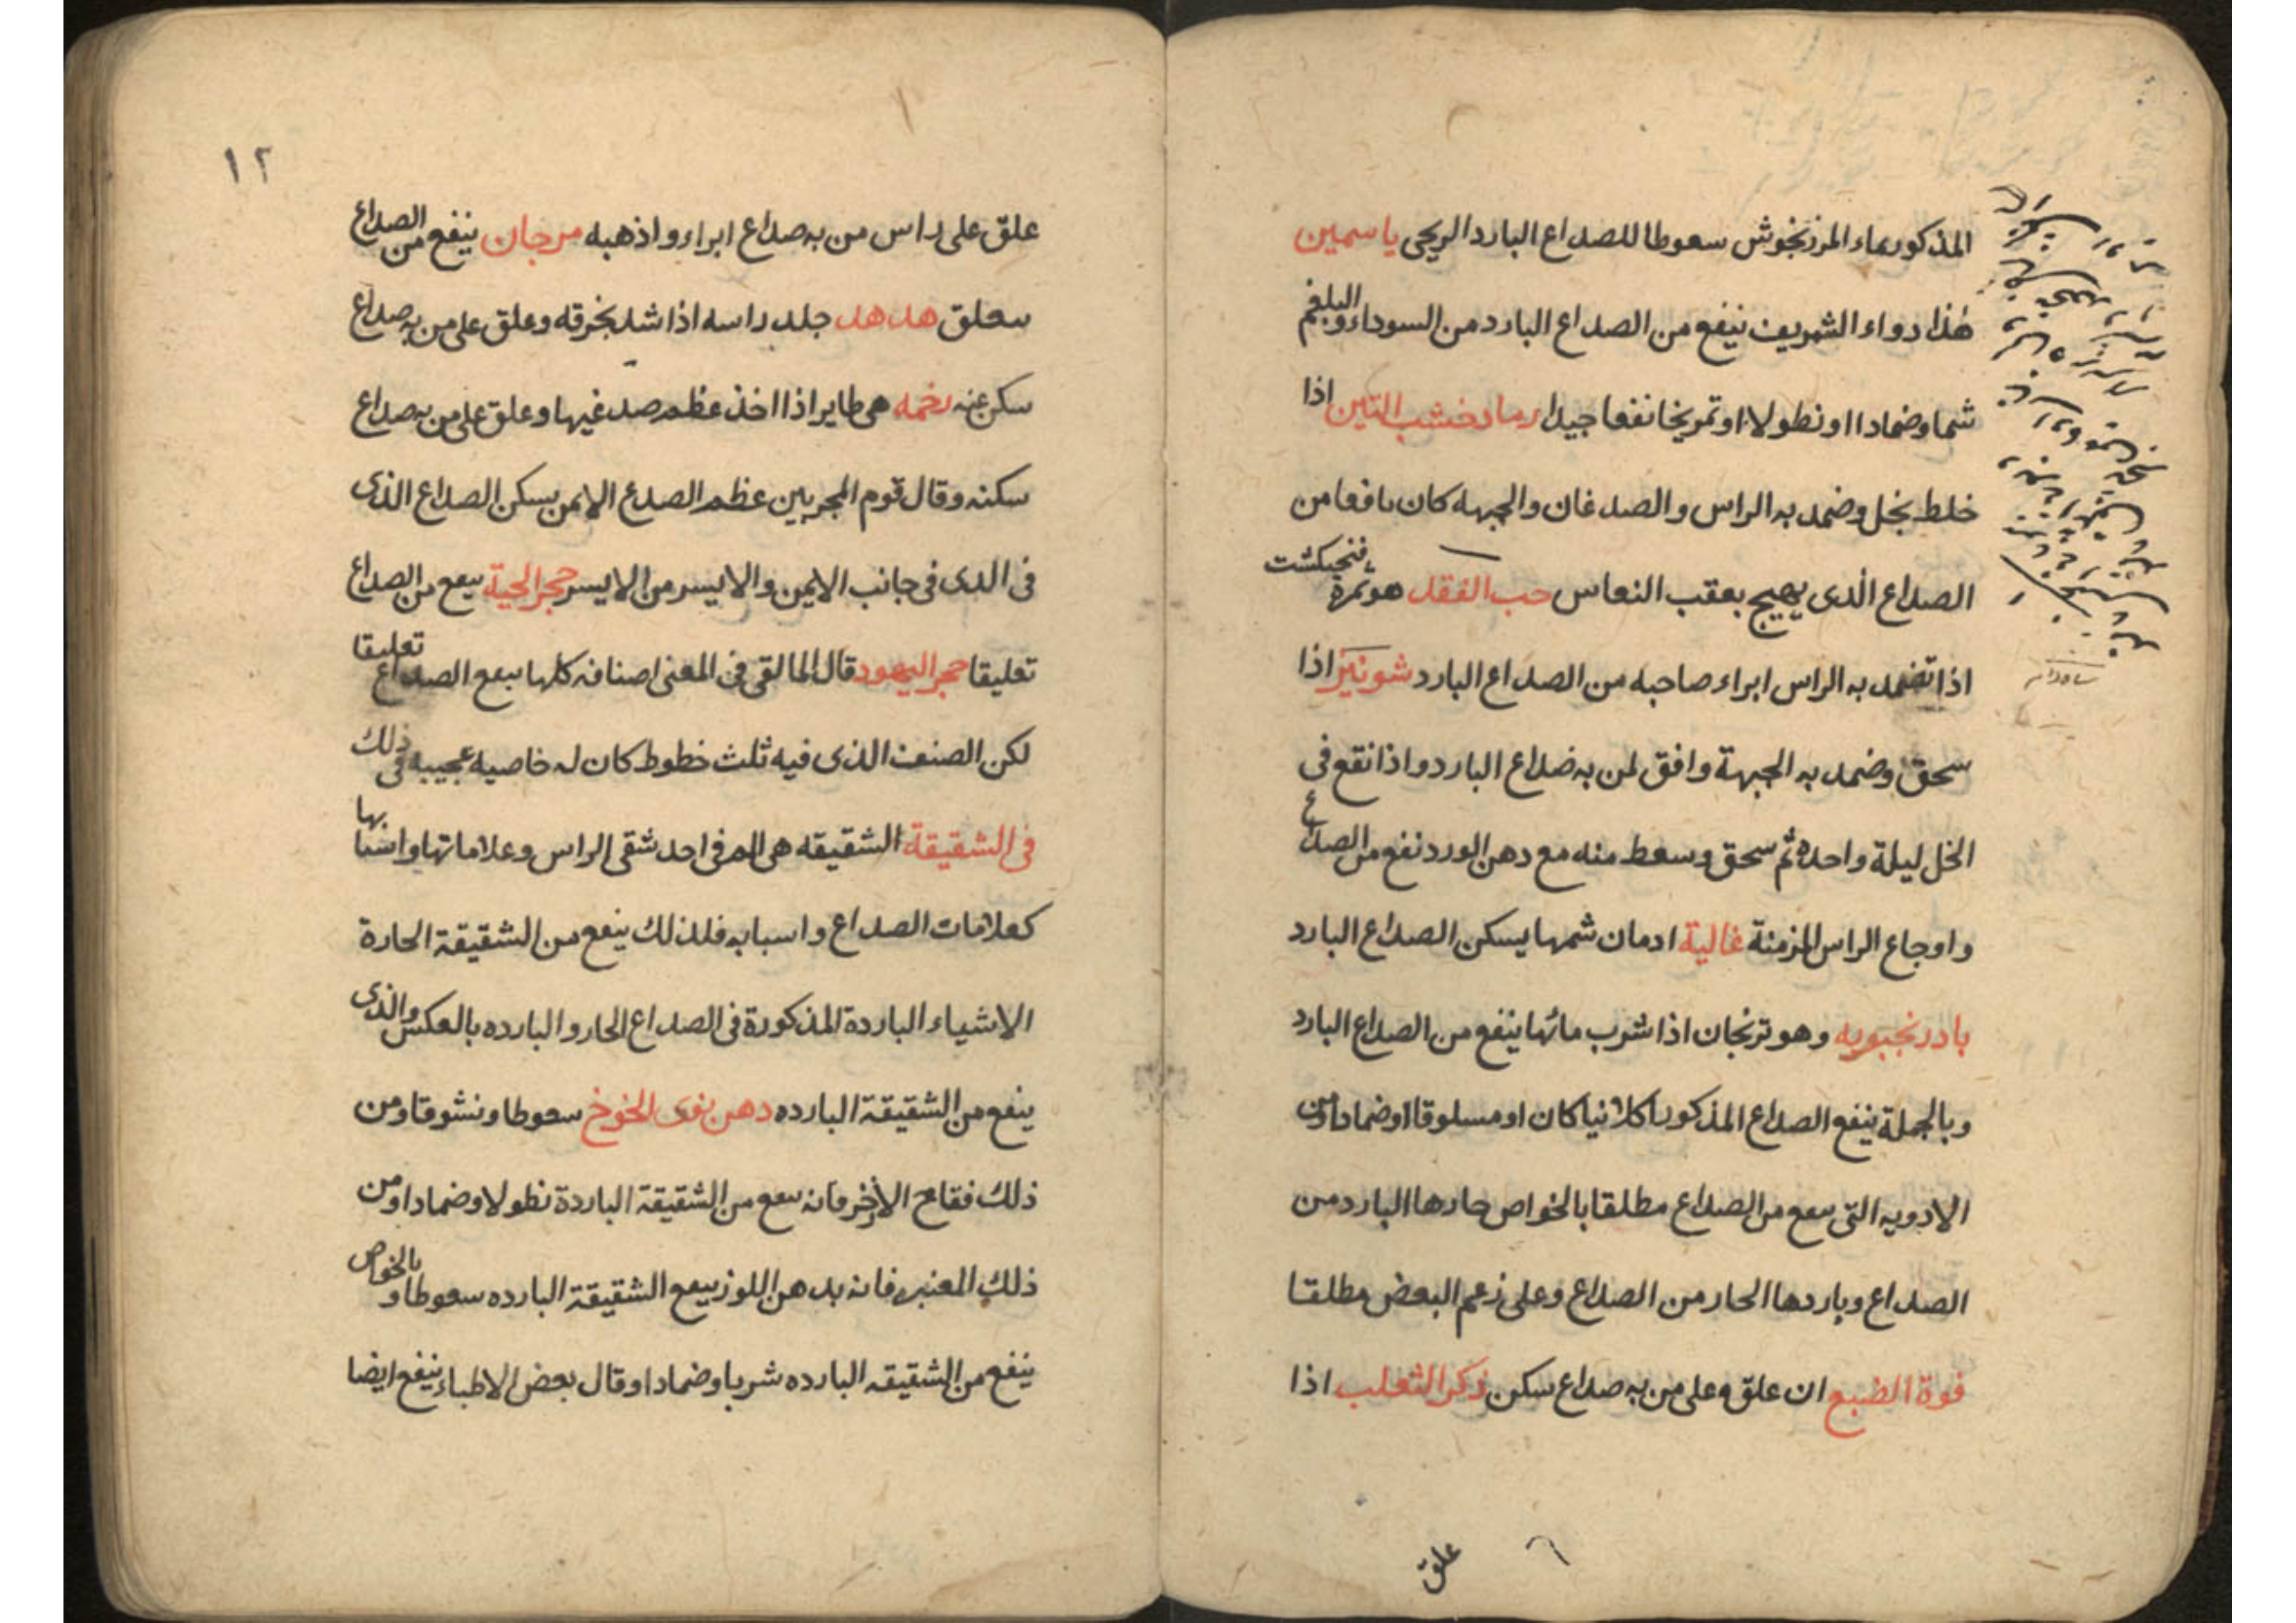 المذكور بماء المرزنجوش سعوطا للصداع البارد الريحى ياسمين
هذا دواء الشريف ينفع من الصداع البارد من السوداء والبلغم
شما وضمادا او نطولا او تمريخا نفعا جيدا رماد خشب التين اذا
خلط بخل وضمد به الراس والصدغان والجبهه كان نافعا من
الصداع الذى يهيج بعقب النعاس حب الفقد هو ثمرة فنجنكشت
اذا تضمد به الراس ابراء صاحبه من الصداع البارد شونيز اذا
سحق وضمد به الجبهة وافق لمن به صداع البارد واذا نقع فى
الخل ليلة واحدة ثم سحق وسعط منه مع دهن الورد نفع من الصداع
واوجاع الراس المزمنة غالية ادمان شمها يسكن الصداع البارد
بادرنجبويه وهو ترنجان اذا شرب مائها ينفع من الصداع البارد
وبالجملة ينفع الصداع المذكور اكلا نيا كان او مسلوقا او ضمادا ومن
الادويه التى ىىفع من الصداع مطلقا بالخواص حارها البارد من
الصداع وباردها الحار من الصداع وعلى زعم البعض مطلقا
فوة الضبع ان علق وعلى من به صداع سكن ذكر الثعلب اذا
علق
١٢
علق على راس من به صداع ابراء واذهبه مرجان ينفع من الصداع
ىىعلق هدهد جلد راسه اذا شد بخرقه وعلق على من به صداع
سكن عنه رخمه هى طاير اذا اخذ عظم صدغيها وعلق على من به صداع
سكنه وقال قوم المجربين عظم الصدع الايمن يسكن الصداع الذى
فى الدى فى جانب الايمن والايسر من الايسر حجر الحية ىىفع من الصداع
تعليقا حجر اليهود قال المالقى فى المغنى اصنافه كلها ىىفع الصداع تعليقا
لكن الصنف الذى فيه ثلث خطوط كان له خاصيه عجيبه فى ذلك
فى الشقيقة الشقيقه هى الم فى احد شقى الراس وعلاماتها واسبابها
كعلامات الصداع واسبابه فلذلك ينفع من الشقيقة الحارة
الاشياء الباردة المذكورة فى الصداع الحار والبارده بالعكس والذى
ينفع من الشقيقة البارده دهن نوى الخوخ سعوطا ونشوقا ومن
ذلك فقاح الاذخر فانه ىىفع من الشقيقة الباردة نطولا وضمادا ومن
ذلك العنبر فانه بدهن اللوز ىىفع الشقيقة البارده سعوطا وبالخواص
ينفع من الشقيقه البارده شربا وضمادا وقال بعض الاطباء ينفع ايضا